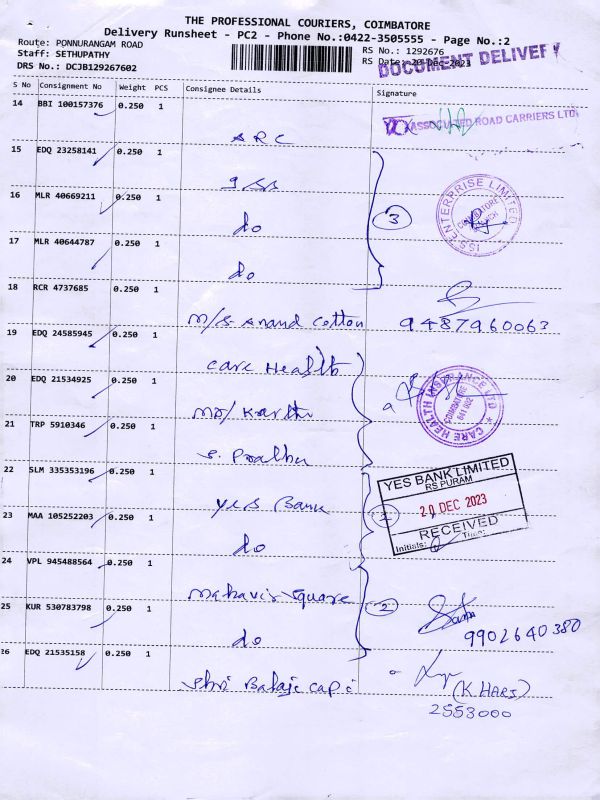 THE PROFESSIONAL COURIERS, COIMBATORE
Delivery Runsheet - PC2 - Phone No.:0422-3505555 - Page No.:2
Route: PONNURANGAM ROAD
Staff: SETHUPATHY
DRS No.: DCJB129267602
RS No.: 1292676
RS Date: 20-Dec-2023
DOCUMENT DELIVERY
S No Consignment No Weight PCS Consignee Details Signature
14 BBI 100157376 0.250 1
ARC
ASSOCIATED ROAD CARRIERS LTD
15 EDQ 23258141 0.250 1
ISS
16 MLR 40669211 0.250 1
do
3
ISS ENTERPRISE LIMITED
COIMBATORE
BRANCH
17 MLR 40644787 0.250 1
do
18 RCR 4737685 0.250 1
M/S. Anand Cotton
9487960063
19 EDQ 24585945 0.250 1
Care Health
20 EDQ 21534925 0.250 1
Mr/ Karthi
CARE HEALTH INSURANCE LTD
COIMBATORE
641 002
21 TRP 5910346 0.250 1
S. Prabhu
22 SLM 335353196 0.250 1
Yes Bank
YES BANK LIMITED
RS PURAM
20 DEC 2023
RECEIVED
Initials: Time:
23 MAA 105252203 0.250 1
do
24 VPL 945488564 0.250 1
Mahavir Square
25 KUR 530783798 0.250 1
do
2
9902640380
26 EDQ 21535158 0.250 1
Shri Balaji Cap
(K. HARI)
2553000